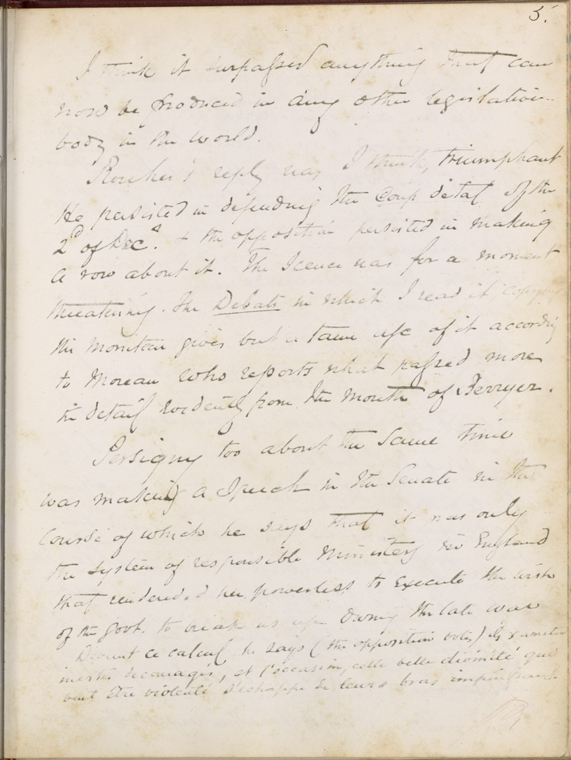 5.
I think it surpassed anything that can
now be produced in any other legislative
body in the world.
Rouher's reply was I think, triumphant
He persisted in defending the Coup detat of the
2d of Decr. + the opposition persisted in making
a row about it. The Scene was for a moment
threatening. The Debats in which I read it
the moniteur gives but a tame of it according
to Moreau who reports what passed more
in detail evidently from the mouth of Berryer.
Persigny too about the same time
was making a Speech in the Senate in the
course of which he says that it was only
the system of responsible Ministery in England
that rendered her powerless to execute the wish
of the Govt. to break us up during the late war
Devant ce calcul he says (the opposition vote)
inertes decouragés, et l'occasion, cette belle divinité qui
veut être violenté s'echappe de leurs bras